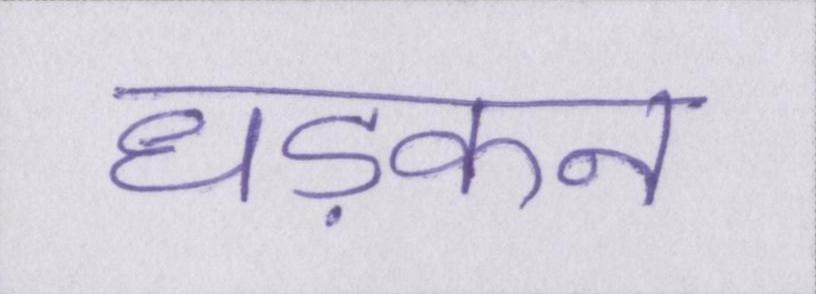 धड़कन